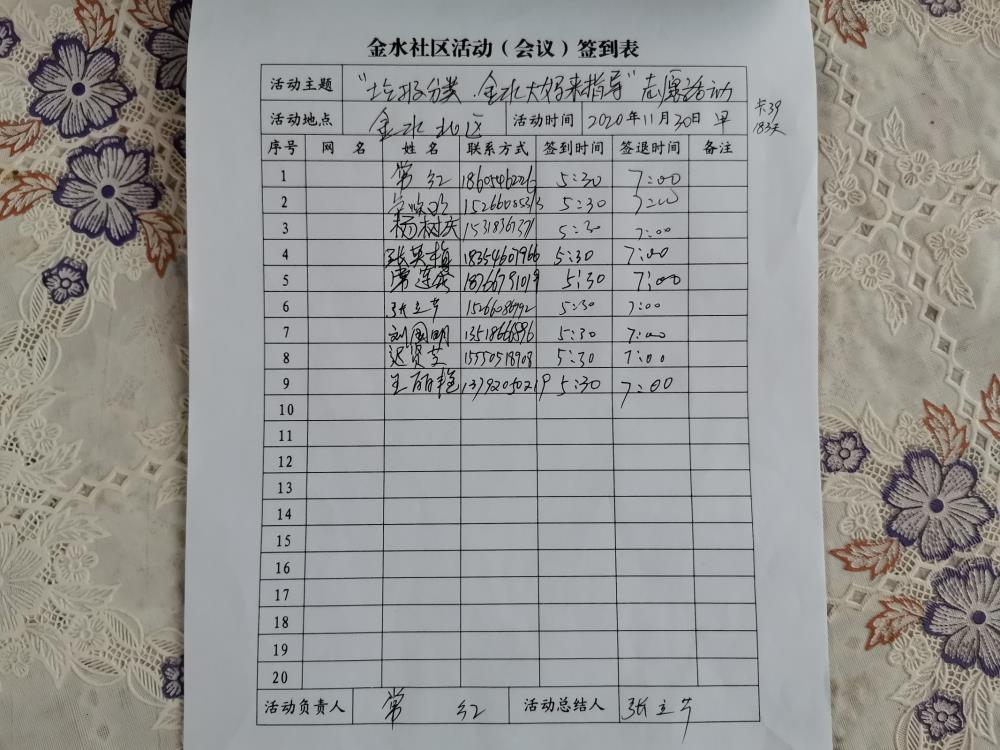 金水社区活动（会议）签到表
活动主题 "垃圾分类.金水大妈来指导"志愿活动
卡39
183天
活动地点 金水北区 活动时间 2020年11月30日 早
序号 网 名 姓 名 联系方式 签到时间 签退时间 备注
1 常红 5:30 7:00
2 5:30 7:00
3 杨树庆 5:30 7:00
4 张英梅 18354607966 5:30 7:00
5 18766791019 5:30 7:00
6 张立芹 15266086992 5:30 7:00
7 刘国明 5:30 7:00
8 迟贤芝 15550518908 5:30 7:00
9 王丽艳 13792050219 5:30 7:00
10
11
12
13
14
15
16
17
18
19
20
活动负责人 常红 活动总结人 张立芹